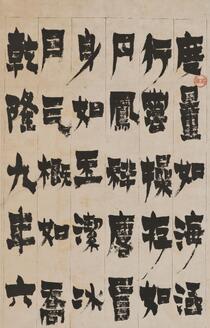 度量如海涵
行雲操存如
丹鳳祥麐言
身如玉潔冰
月氣概如喬
乾隆九年六